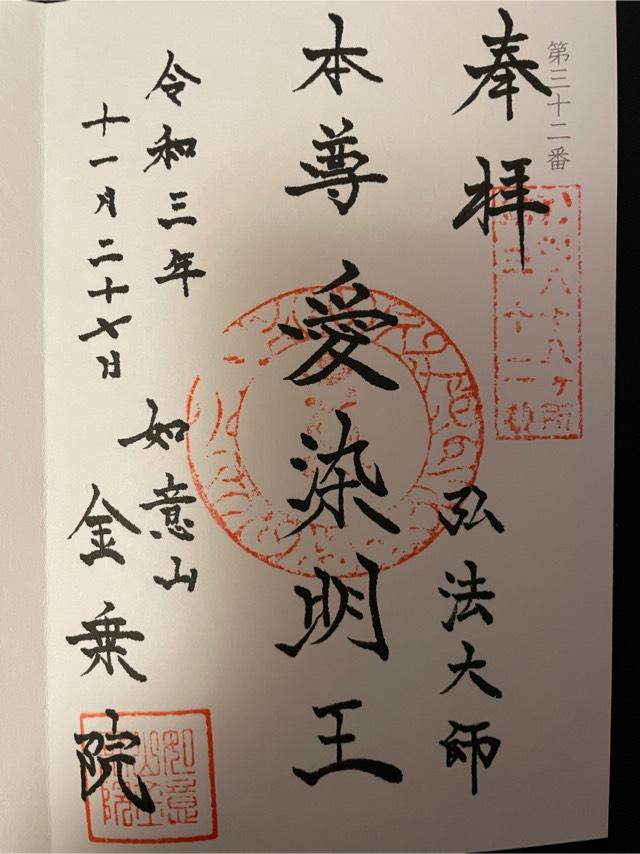 第三十二番
奉拝
弘法大師
本尊 愛染明王
令和三年
十一月二十七日
如意山
金乗院